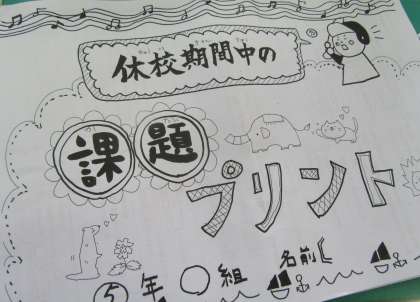 休校期間中の
課題
プリント
⑤年〇組 名前